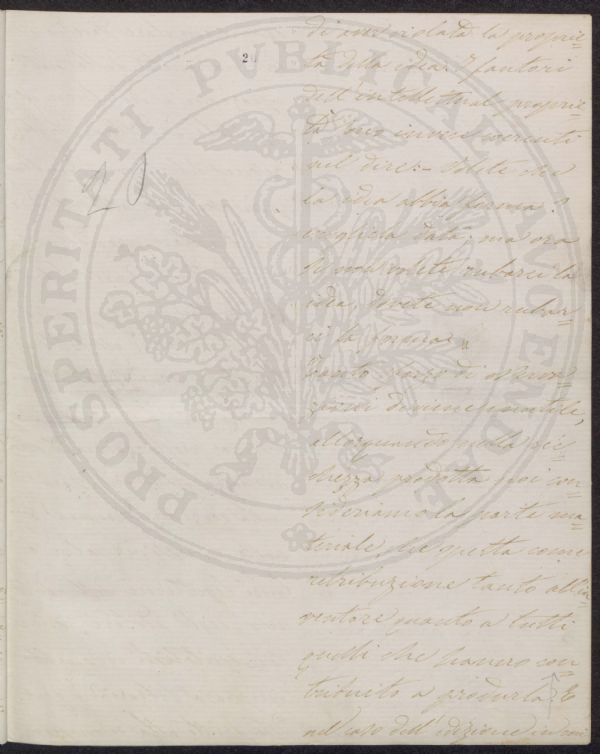 2
20
PROSPERITATI PVBLICAE AVGENDAE
di aver violata la proprie=
tà della idea. I fautori
dell'intellettual proprie=
tà loro invece
nel dire= Volete che
la idea abbia forma?
ve data; ma ora
se non volete rubarci la
idea, dovete non rubar=
ci la forma"
Tanto sforzo di
diviene inutile,
allorquando nella ric=
chezza prodotta noi con=
sideriamo la parte ma=
teriale, che spetta come
retribuzione tanto all'in=
ventore quanto a tutti
quelli che hanno con=
tribuito a produrla. E
nel caso dell'edizione